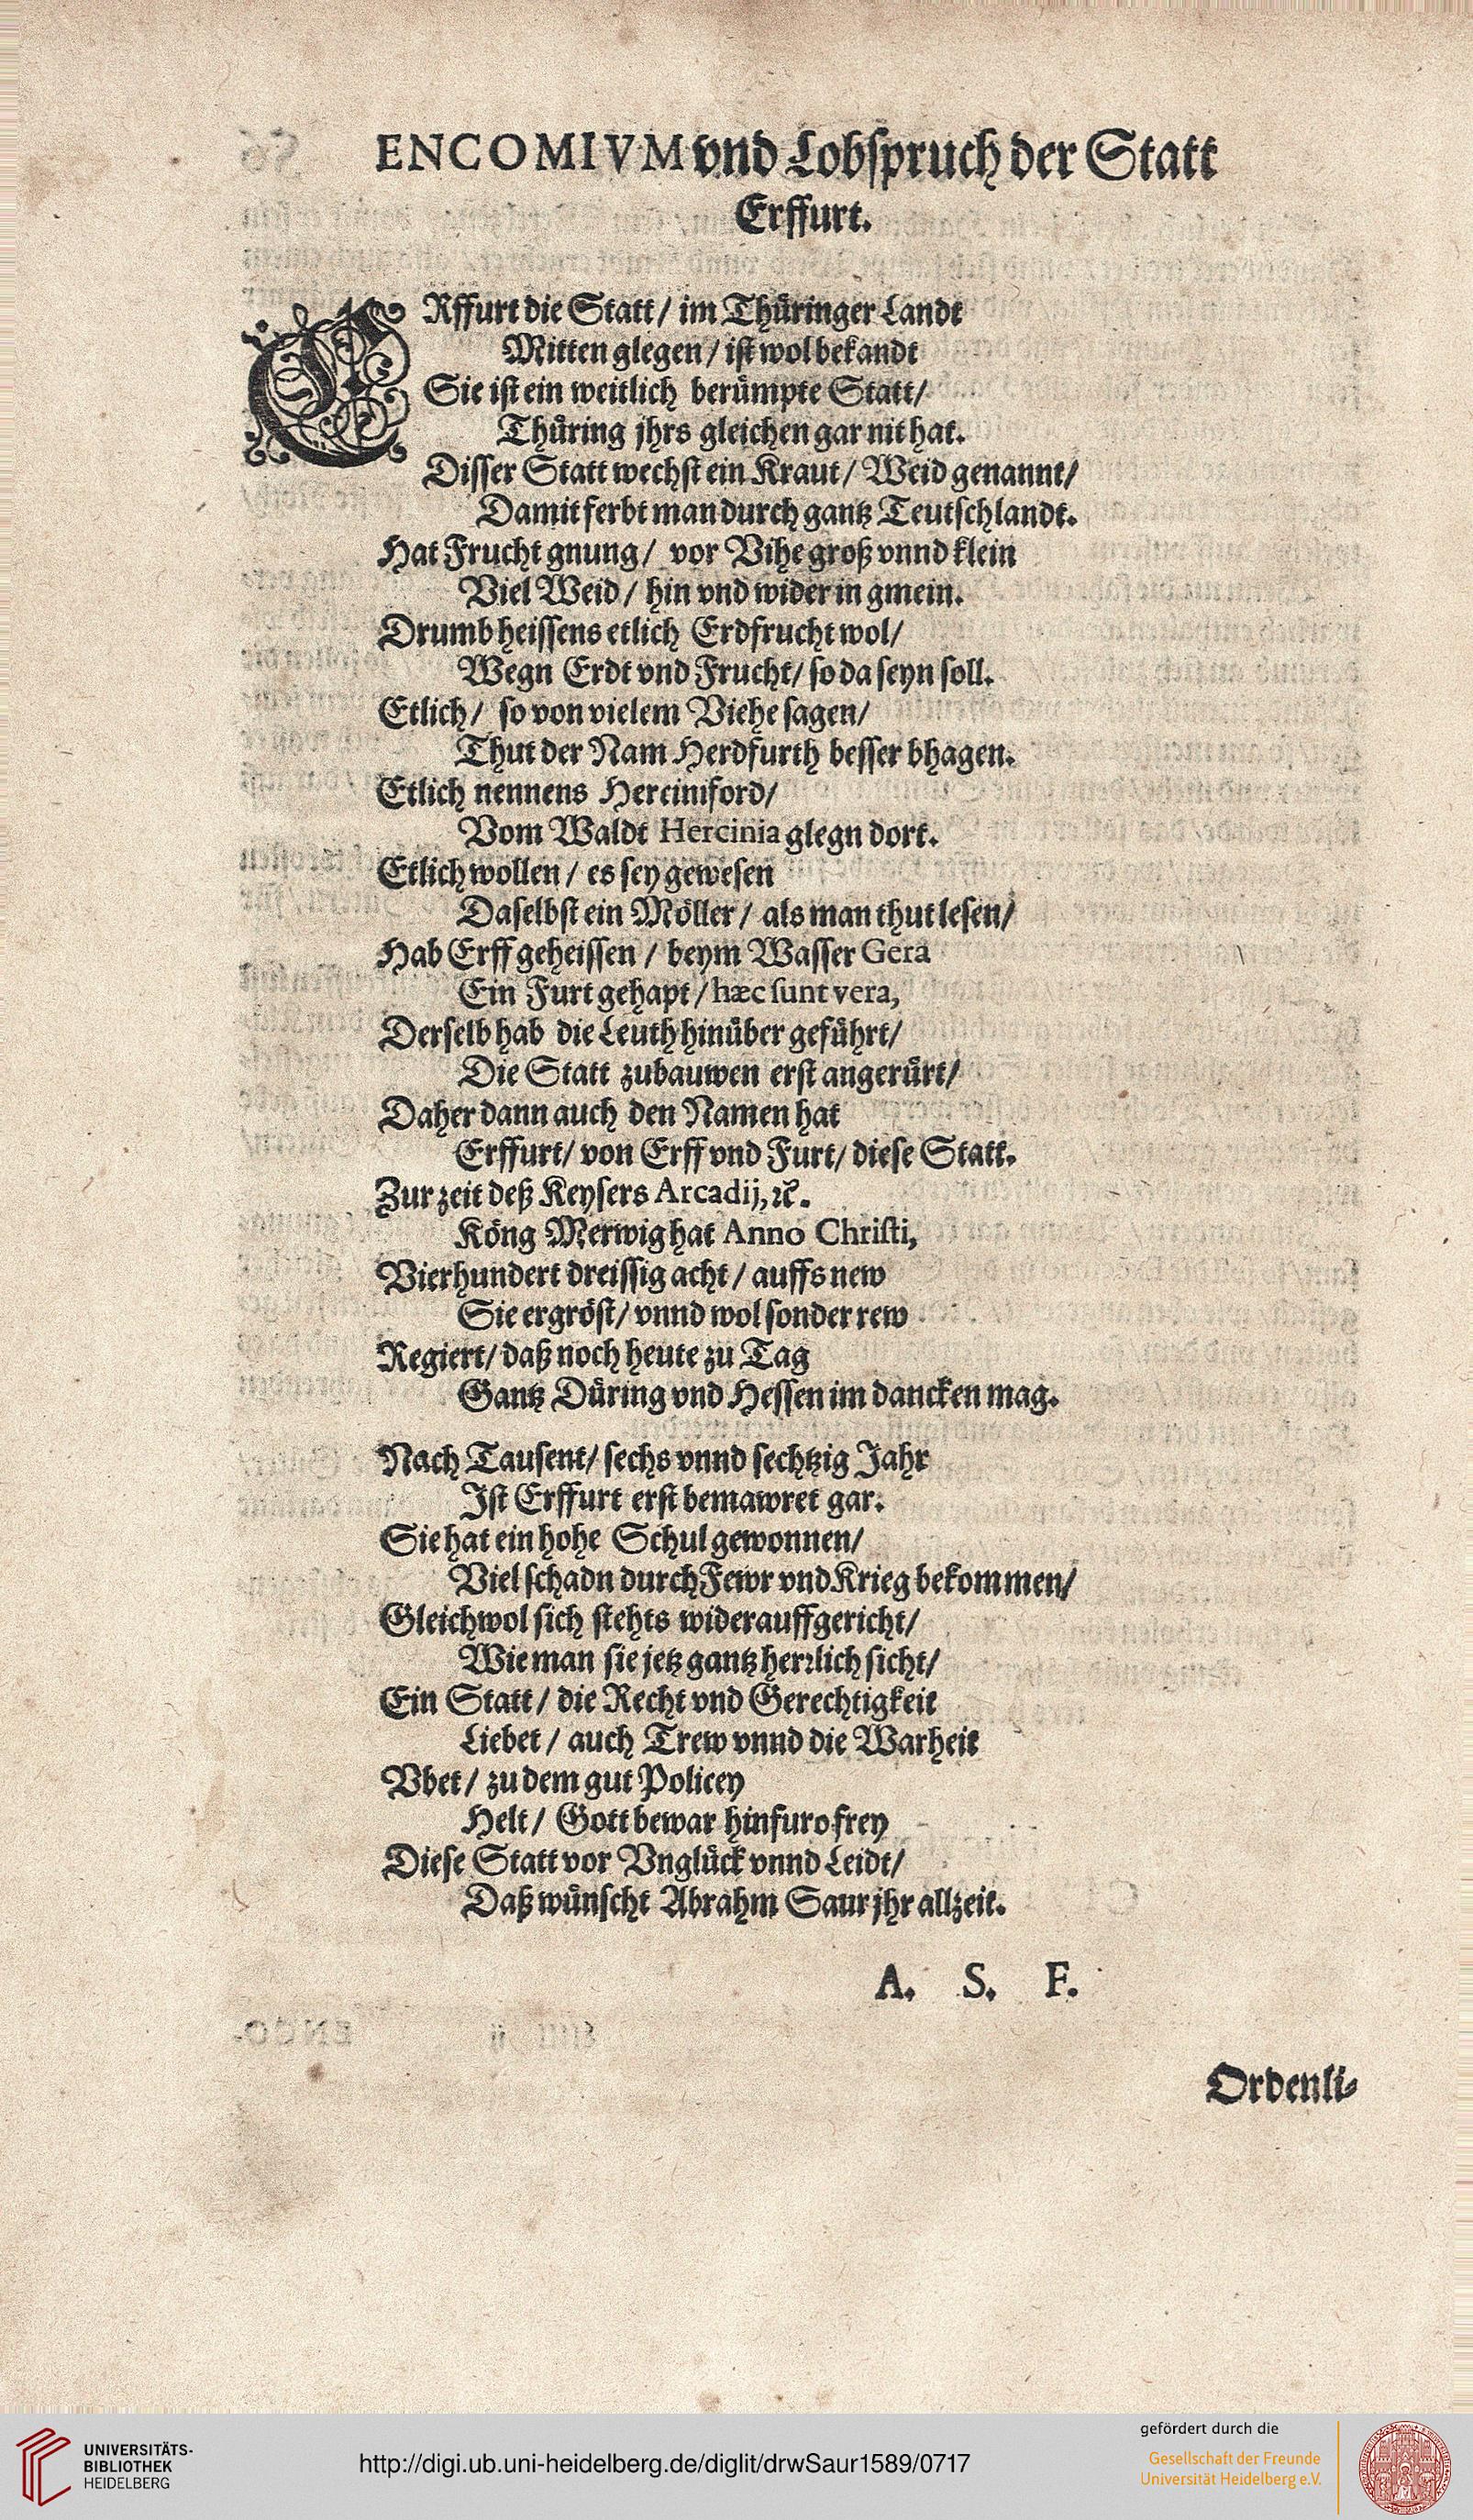 ENCOMIVM vnd Lobspruch der Statt
Erffurt.
ERffurt die Statt / im Thüringer Landt
Mitten glegen / ist wol bekandt
Sie ist ein weitlich berümpte Statt /
Thüring jhrs gleichen gar nit hat.
Disser Statt wechst ein Kraut / Weid genannt /
Damit ferbt man durch gantz Teutschlandt.
Hat Frucht gnung / vor Vihe groß vnnd klein
Viel Weid / hin vnd wider in gmein.
Drumb heissens etlich Erdfrucht wol /
Wegn Erdt vnd Frucht / so da seyn soll.
Etlich / so von vielem Viehe sagen /
Thut der Nam Herdfurth besser bhagen.
Etlich nennens Herciniford /
Vom Waldt Hercinia glegn dort.
Etlich wollen / es sey gewesen
Daselbst ein Möller / als man thut lesen /
Hab Erff geheissen / beym Wasser Gera
Ein Furt gehapt / hæc sunt vera,
Derselb hab die Leuth hinüber geführt /
Die Statt zubauwen erst angerürt /
Daher dann auch den Namen hat
Erffurt / von Erff vnd Furt / diese Statt.
Zur zeit deß Keysers Arcadij, ꝛc.
Köng Merwig hat Anno Christi,
Vierhundert dreissig acht / auffs new
Sie ergröst / vnnd wol sonder rew
Regiert / daß noch heute zu Tag
Gantz Düring vnd Hessen im dancken mag.
Nach Tausent / sechs vnnd sechtzig Jahr
Ist Erffurt erst bemawret gar.
Sie hat ein hohe Schul gewonnen /
Viel schadn durch Fewr vnd Krieg bekommen /
Gleichwol sich stehts widerauffgericht /
Wie man sie jetz gantz herrlich sicht /
Ein Statt / die Recht vnd Gerechtigkeit
Liebet / auch Trew vnnd die Warheit
Vbet / zu dem gut Policey
Helt / Gott bewar hinfuro frey
Diese Statt vor Vnglück vnnd Leidt /
Daß wünscht Abrahm Saur jhr allzeit.
A. S. F.
Ordenli-
UNIVERSITÄTS-
BIBLIOTHEK
HEIDELBERG
http://digi.ub.uni-heidelberg.de/diglit/drwSaur1589/0717
gefördert durch die
Gesellschaft der Freunde
Universität Heidelberg e.V.